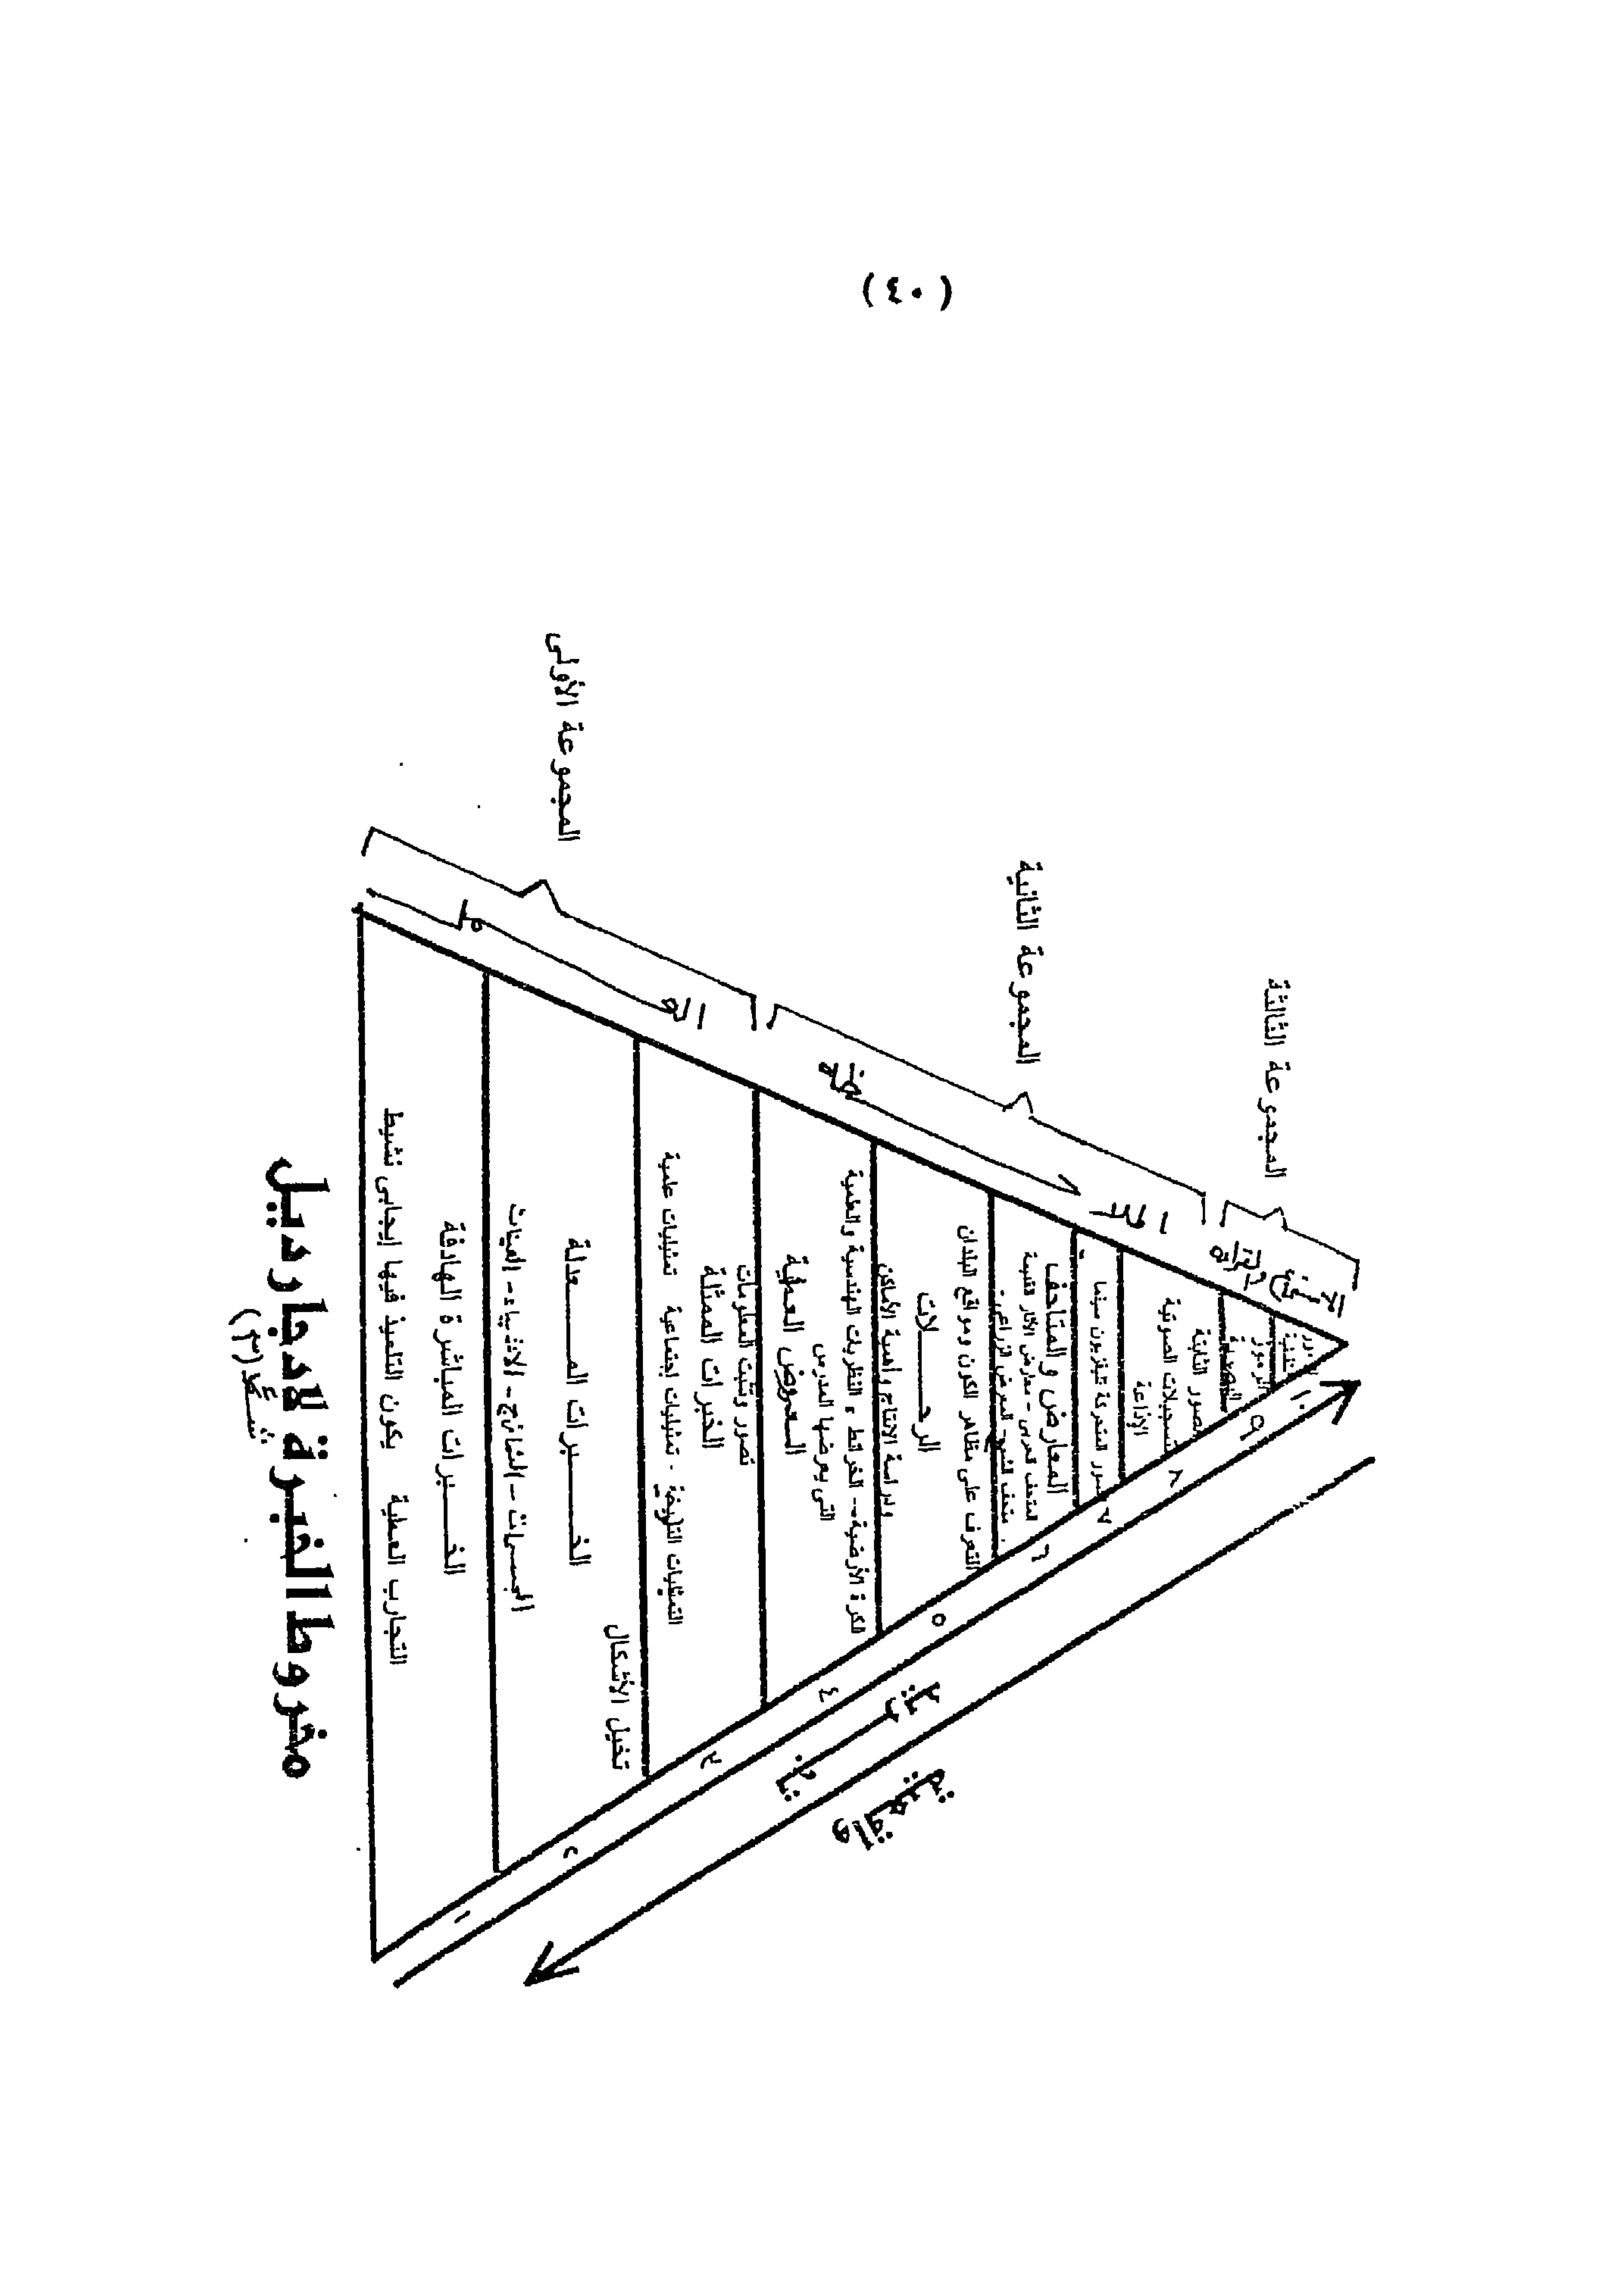 (٤٠)
المجموعة الثالثة
المجموعة الثانية
المجموعة الأولى
١٠
الرموز
٩
الصور الثابتة
التسجيلات الصوتية
الإذاعة
٨
الصور المتحركة تليفزيون سينما
٧
المعارض والمتاحف
٦
التعرف على مظاهر الكون ومواقع البلدان
الرحـــــلات
ودراسة الانتاج وأهمية الأماكن
٥
الكرة الأرضية -- الخرائط ، النظريات الهندسية والعلمية
التى يعرضها المدرس
العروض العملية
٤
تصور وتثبت المعلومات
الخبرات الممثلة
التمثيليات التاريخية - تمثيليات إجتماعية تمثيليات علمية
٣
تخيل الأشكال
الخـــــبرات المـــــعدلة
المجسمات - النماذج - الاشياء - العينات
٢
الخـــــبرات المباشرة الهادفة
التجارب العملية يكون التلميذ فيها إيجابى نشيط
١
واقعية
مخروط الخبرة لادجار ديل
شكل (٣)